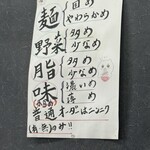 麺 固め
やわらかめ
野菜 多め
少なめ
脂 多め
少なめ
味 濃いめ
薄め
普通オーダーはニンニク
(有・無)のみ!!